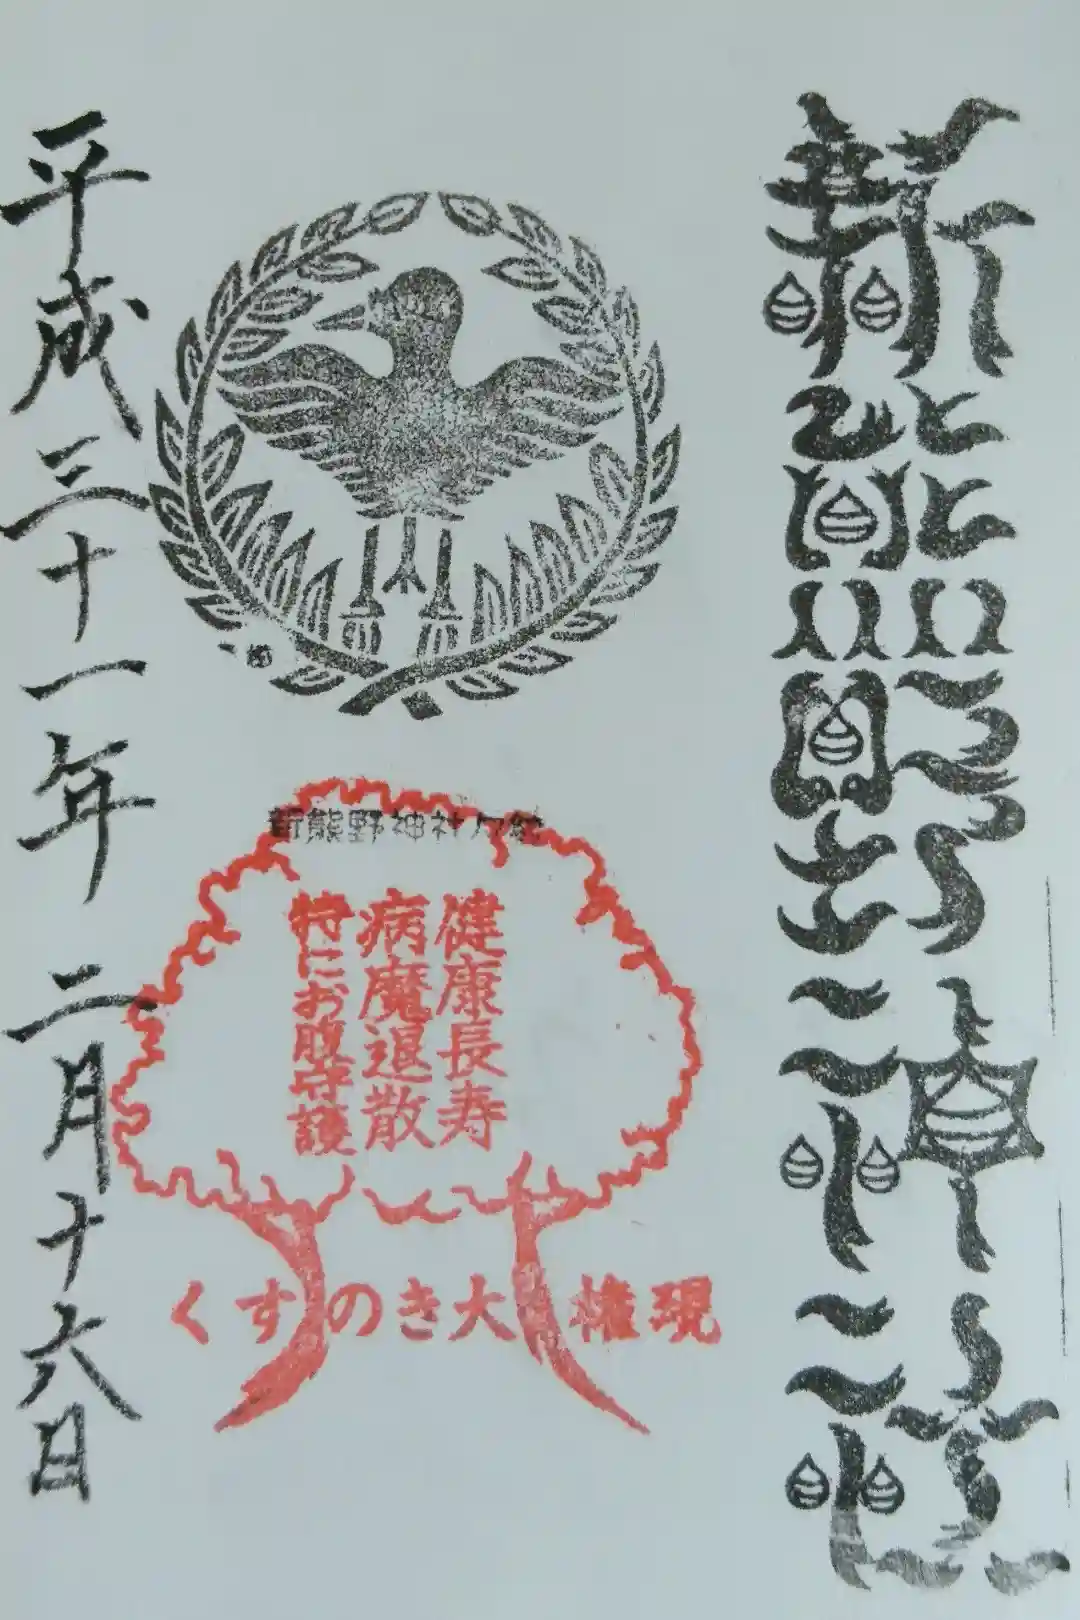 新熊野神社
新熊野神社八咫烏
健康長寿
病魔退散
特にお腹守護
くすのき大権現
平成三十一年二月十六日